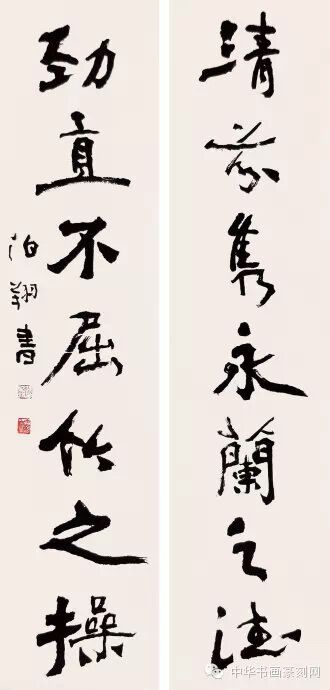 清芬隽永兰之德
劲直不屈竹之操
泊翔书
中华书画篆刻网